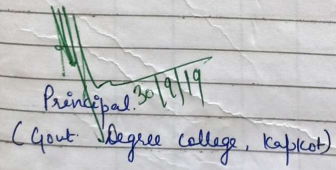 30/9/19
Principal.
(Gout. Degree College, Kapkot)